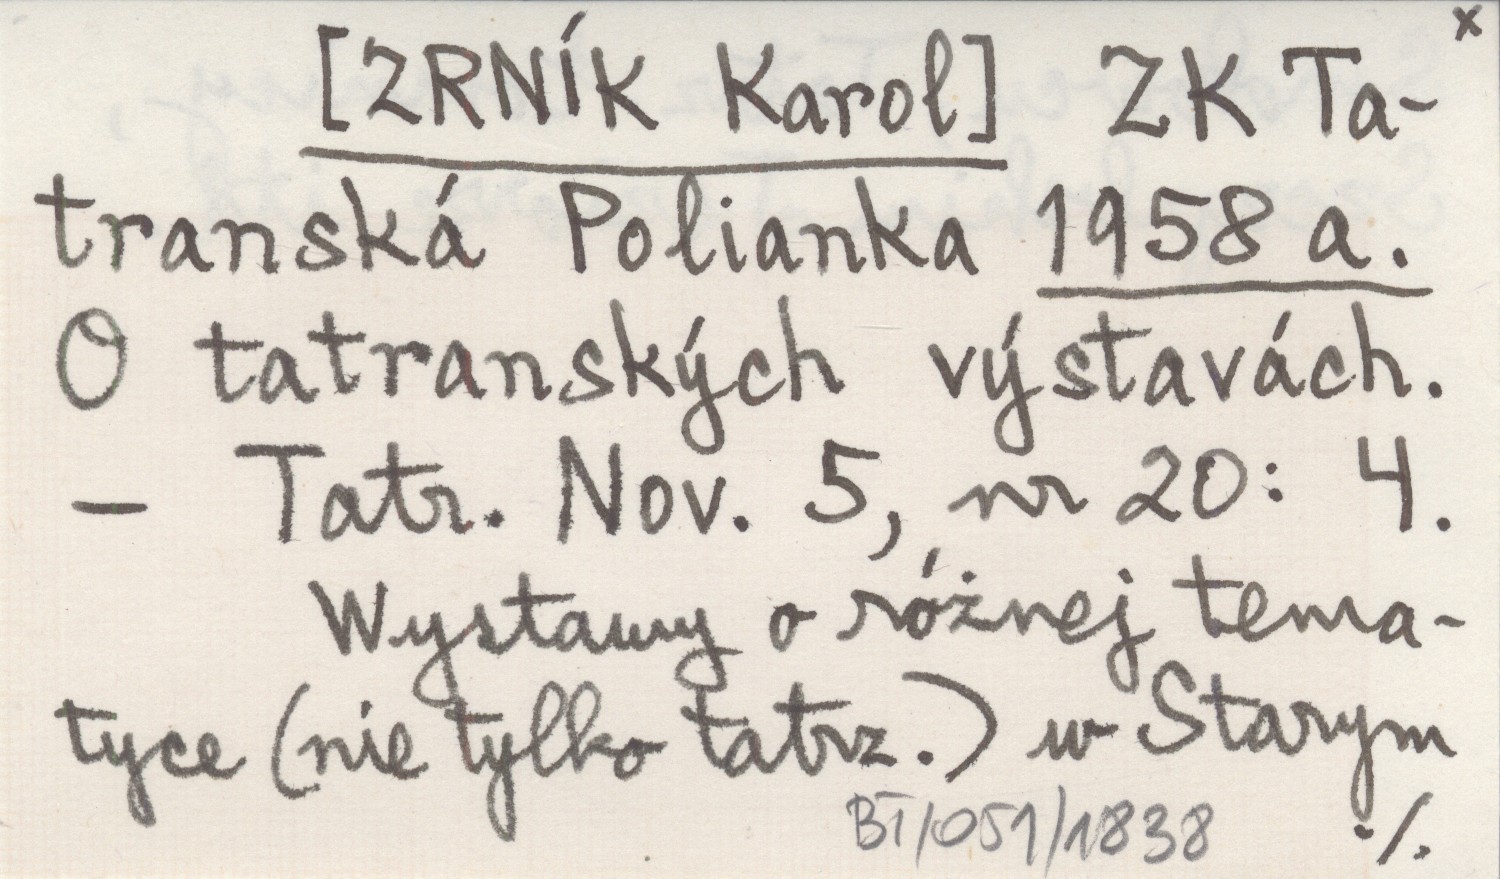 x
[ZRNÍK Karol] ZK Ta-
transká Polianka 1958 a.
O tatranských výstavách.
— Tatr. Nov. 5, nr 20: 4.
Wystawy o różnej tema-
tyce (nie tylko tatrz.) w Starym
BT/051/1838 ·/.